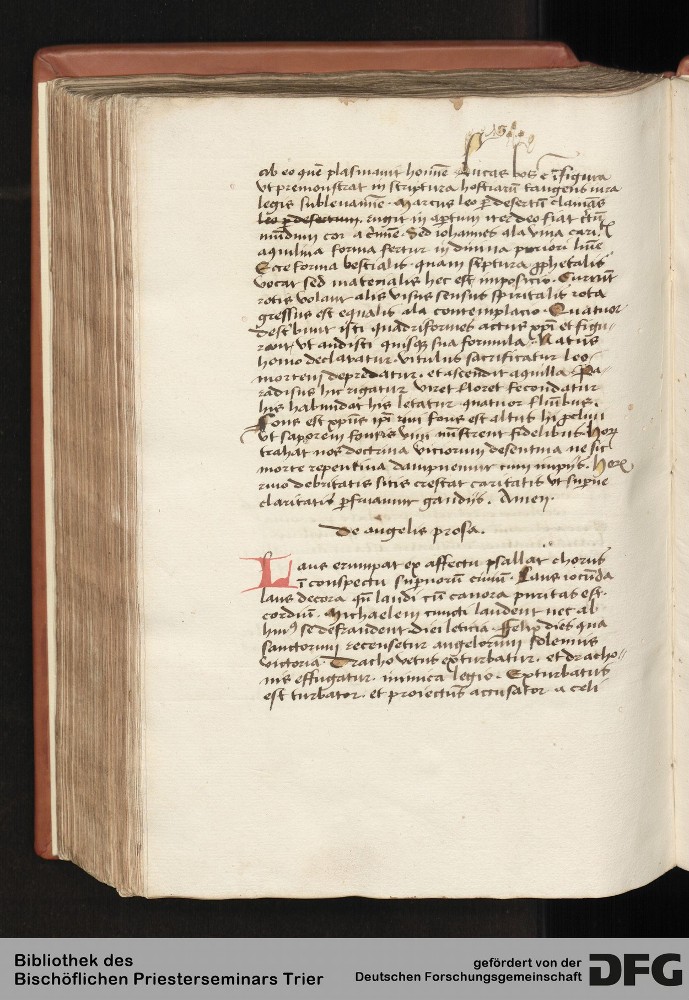 ab eo quē plasmavit homīe. Lucas bos ē ī figura
ut premonstrat in scriptura hostiarū tangens iura
legis sub velamīe. Marcus leo p desertū clamās
leo p desertum rugit in apertum iter deo fiat c̄tū
mūdum cor a c̄mīe. Sed iohannes ala bina carit
aquilina forma fertur in divina puriori lūīe
Ecce forma bestialis quam sc̄ptura p̄phetalis
vocat sed materialis hec est impositio. Currūt
rotis volant alis visus sensus spiritalis rota
gressus est equalis ala contemplacio. Quatuor
describunt isti quadriformes actus xp̄i et figu-
rant ut audisti quisq; sua formula. Natus
homo declaratur vitulus sacrificatur leo
mortem depredatur et ascendit aquilla. Pa-
radisus his rigatur viret floret fecondatur
his habundat his letatur quatuor flūibus.
Fons est xp̄us ip̄i rivi fons est altus hi p̄clivi
ut saporem fontis vivi mīstrent fidelibus. Horū
trahat nos doctrina viciorum de sentina ne sic
morte repentina dampnemur cum impijs. Horū
rivo debritatis sitis crescat caritatis ut sup̄ne
claritatis p̄fruamur gaudijs. Amen.
De angelis prosa.
Laus erumpat ex affectu psallat chorus
ī conspectu sup̄norū civiū. Laus iocūda
laus decora qn̄ laudi cū canora puritas est
cordiū. Michaelem cuncti laudent nec ab
huiꝰ se defraudent diei leticia. Felix dies qua
sanctorum recensetur angelorum solemnis
victoria. Dracho vetus exturbatur et dracho-
nis effugatur inimica legio. Exturbatus
est turbator et proiectus accusator a celi
Bibliothek des
Bischöflichen Priesterseminars Trier
gefördert von der
Deutschen Forschungsgemeinschaft
DFG